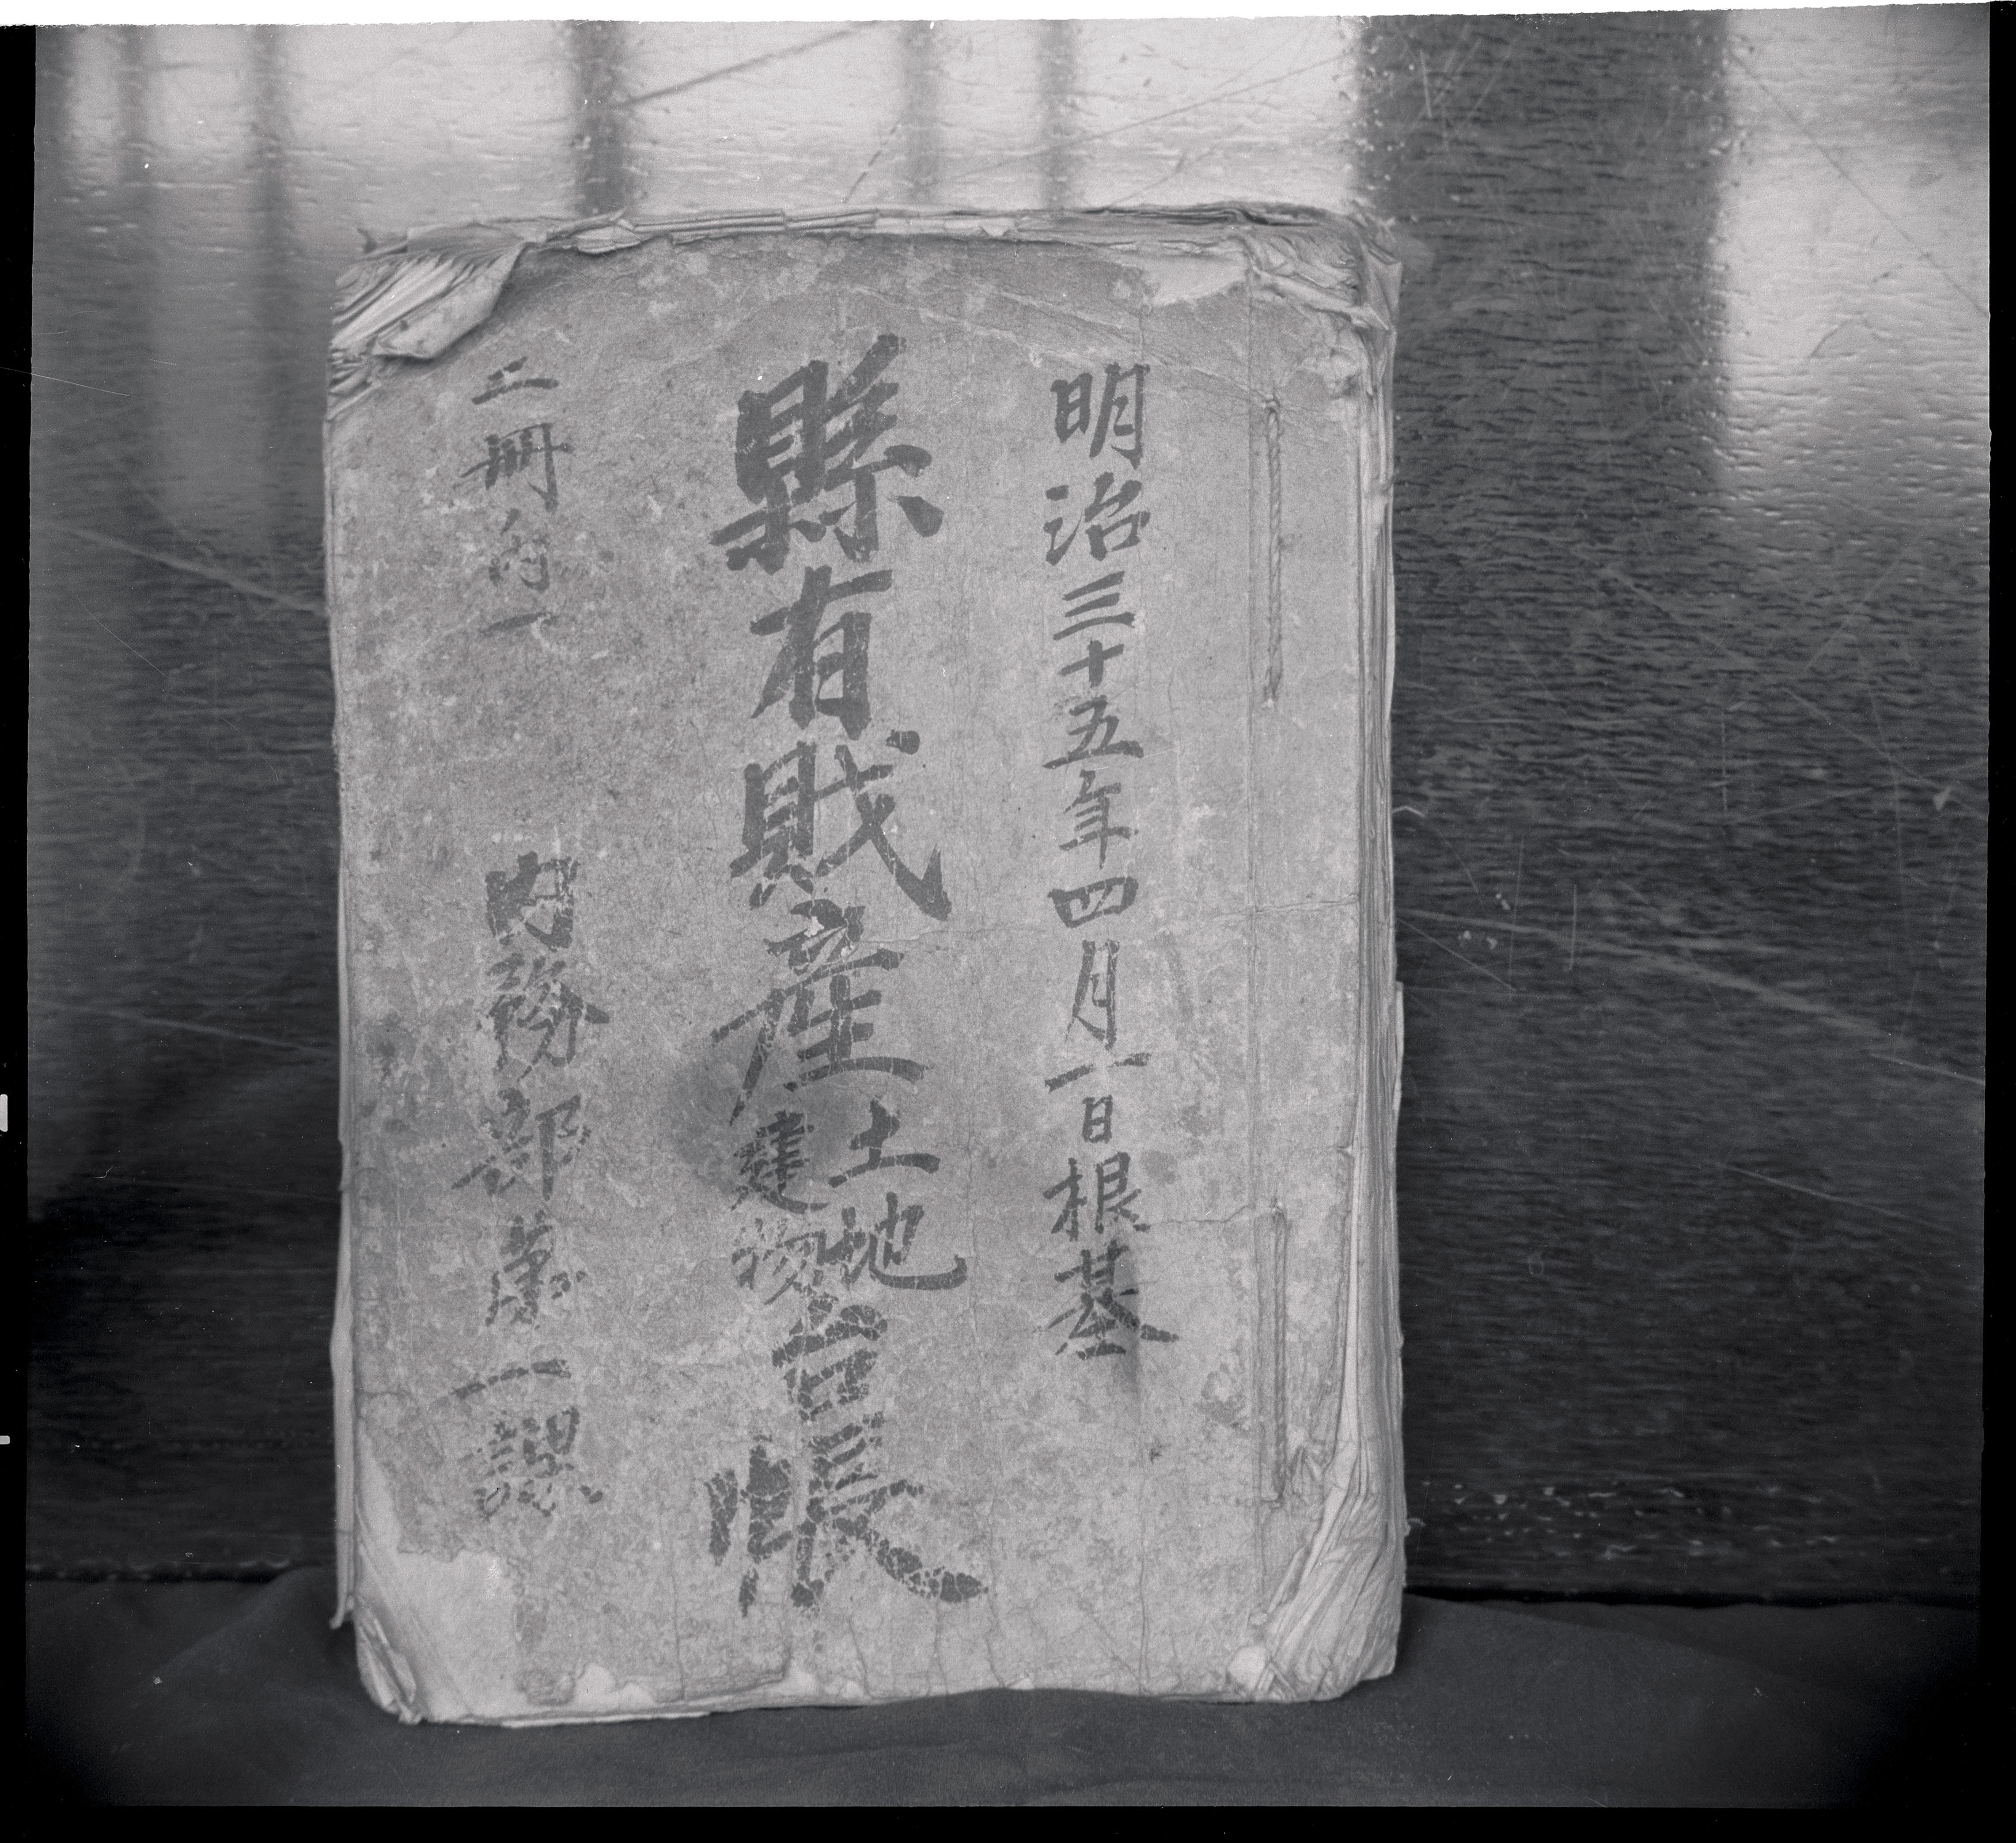 明治三十五年四月一日根基
縣有財産土地建物台帳
二冊内一
内務部第一課